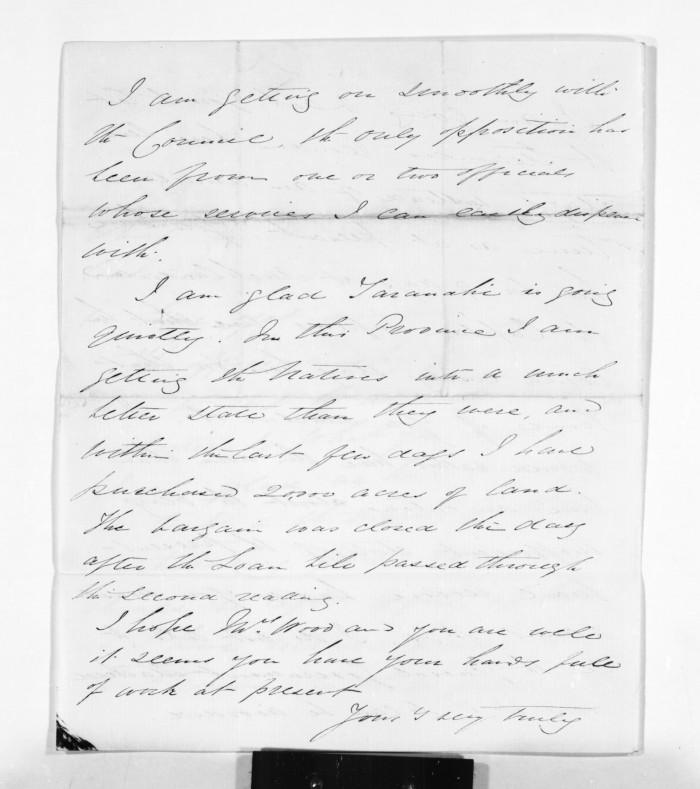 I am getting on smoothly with
the Council, the only opposition has
been from one or two officials
whose services I can easily dispense
with.
I am glad Taranaki is going
quietly. In this Province I am
getting the Natives into a much
better state than they were, and
within the last few days I have
purchased 20,000 acres of land.
The bargain was closed the day
after the Loan bill passed through
the second reading.
I hope Mrs Wood and you are well
it seems you have your hands full
of work at present
Yours very truly